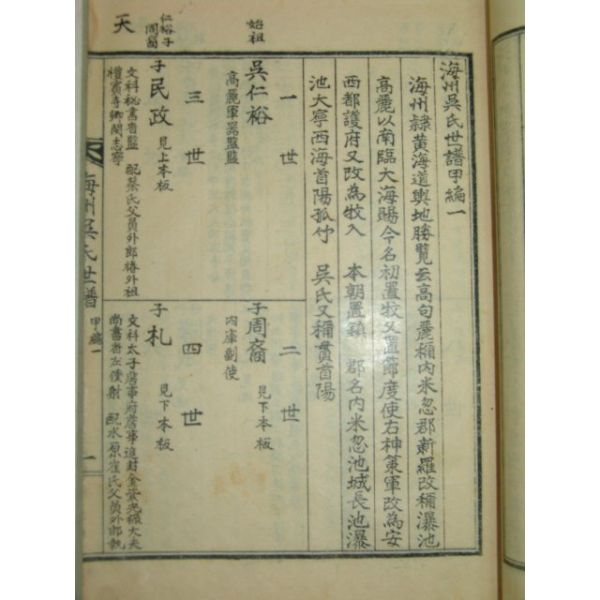 海州吳氏世譜甲編一
海州隸黃海道輿地勝覽云高句麗稱內米忽郡新羅改稱瀑池
高麗以南臨大海賜今名初置牧又置節度使右神策軍改為安
西都護府又改為牧入 本朝置鎮 郡名內米忽池城長池瀑
池大寧西海首陽孤竹 吳氏又稱貫首陽
始祖
一世
吳仁裕
高麗軍器監監
二世
子周裔 見下本板
內庫副使
天
仁裕子
周裔
三世
子民政 見上本板
文科秘書省監 配蔡氏父員外郎椿外祖
禮賓寺卿閔志寧
四世
子札 見下本板
文科太子詹事府詹事追封金紫光祿大夫
尚書省左僕射 配水原崔氏父員外郎
海州吳氏世譜
甲編一
一